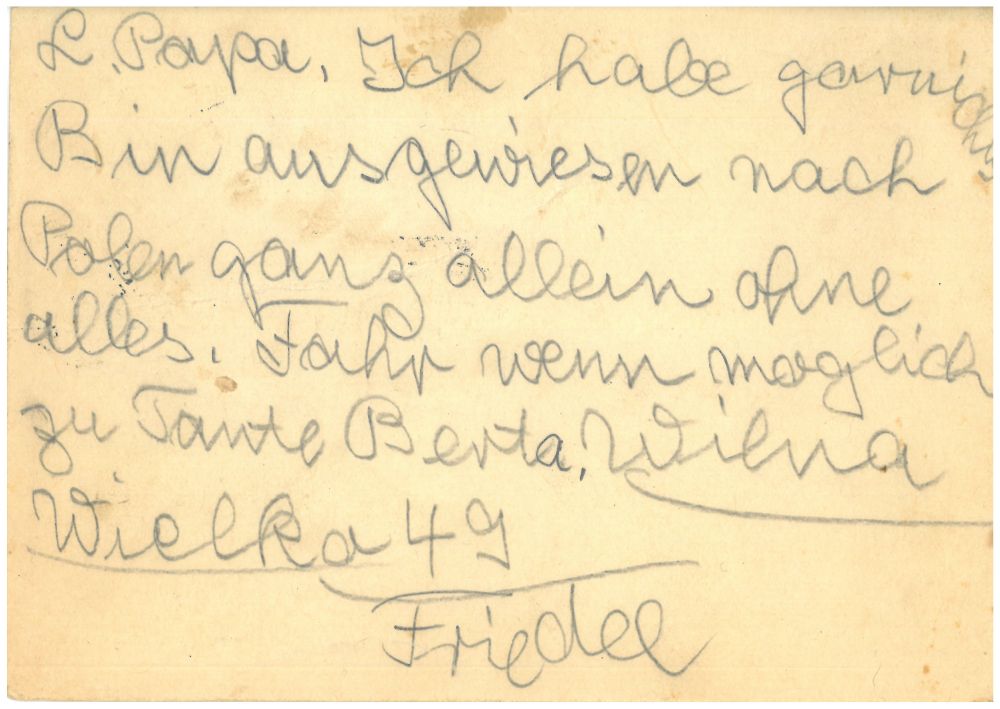 L. Papa. Ich habe garnichts
Bin ausgewiesen nach
Polen ganz allein ohne
alles. Fahr wenn moglich
zu Tante Berta, Wilna
Wielka 49
Friedel